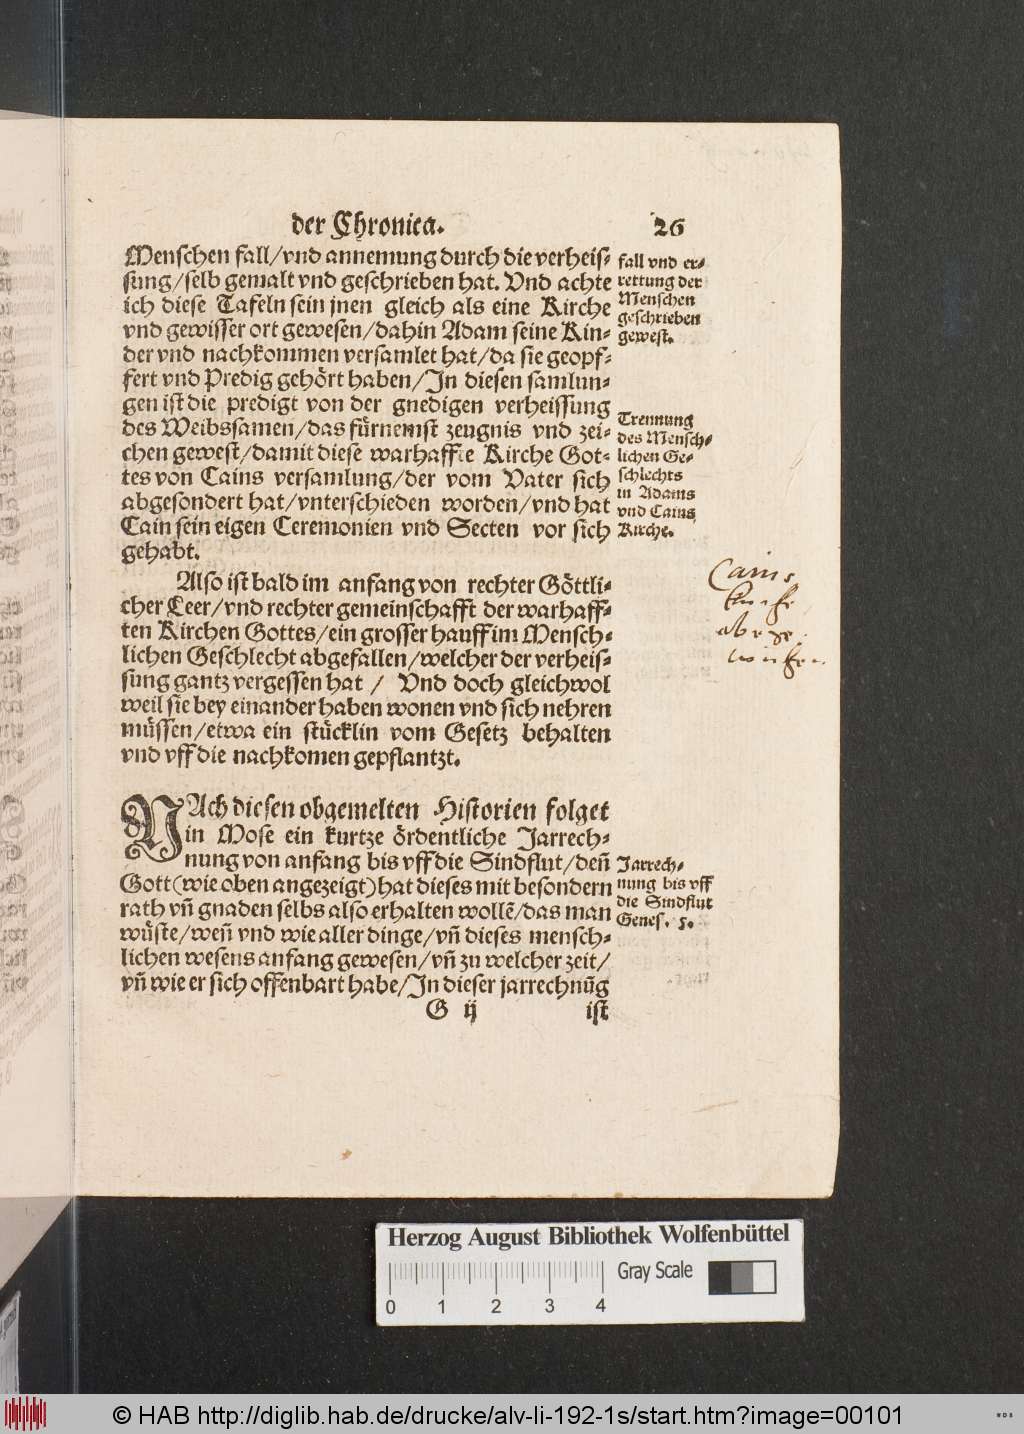 der Chronica. 26
Menschen fall/vnd annemung durch die verheis-
sung/selb gemalt vnd geschrieben hat. Vnd achte
ich diese Tafeln sein jnen gleich als eine Kirche
vnd gewisser ort gewesen/dahin Adam seine Kin-
der vnd nachkommen versamlet hat/da sie geopf-
fert vnd Predig gehört haben/In diesen samlun-
gen ist die predigt von der gnedigen verheissung
des Weibssamen/das fürnemst zeugnis vnd zei-
chen gewest/damit diese warhaffte Kirche Got-
tes von Cains versamlung/der vom Vater sich
abgesondert hat/vnterschieden worden/vnd hat
Cain sein eigen Ceremonien vnd Secten vor sich
gehabt.
fall vnd er-
rettung der
Menschen
geschrieben
gewest.
Trennung
des Mensch-
lichen Ge-
schlechts
in Adams
vnd Cains
Kirche.
Cains
Kirche
Also ist bald im anfang von rechter Göttli-
cher Leer/vnd rechter gemeinschafft der warhaff-
ten Kirchen Gottes/ein grosser hauff im Mensch-
lichen Geschlecht abgefallen/welcher der verheis-
sung gantz vergessen hat / Vnd doch gleichwol
weil sie bey einander haben wonen vnd sich nehren
müssen/etwa ein stücklin vom Gesetz behalten
vnd vff die nachkomen gepflantzt.
NAch diesen obgemelten Historien folget
in Mose ein kurtze ördentliche Jarrech-
nung von anfang bis vff die Sindflut/deñ
Gott(wie oben angezeigt)hat dieses mit besondern
rath vñ gnaden selbs also erhalten wollẽ/das man
wüste/weñ vnd wie aller dinge/vñ dieses mensch-
lichen wesens anfang gewesen/vñ zu welcher zeit/
vñ wie er sich offenbart habe/In dieser jarrechnũg
Jarrech-
nung bis vff
die Sindflut
Genes. 5.
G ij ist
Herzog August Bibliothek Wolfenbüttel
Gray Scale
0 1 2 3 4
© HAB http://diglib.hab.de/drucke/alv-li-192-1s/start.htm?image=00101